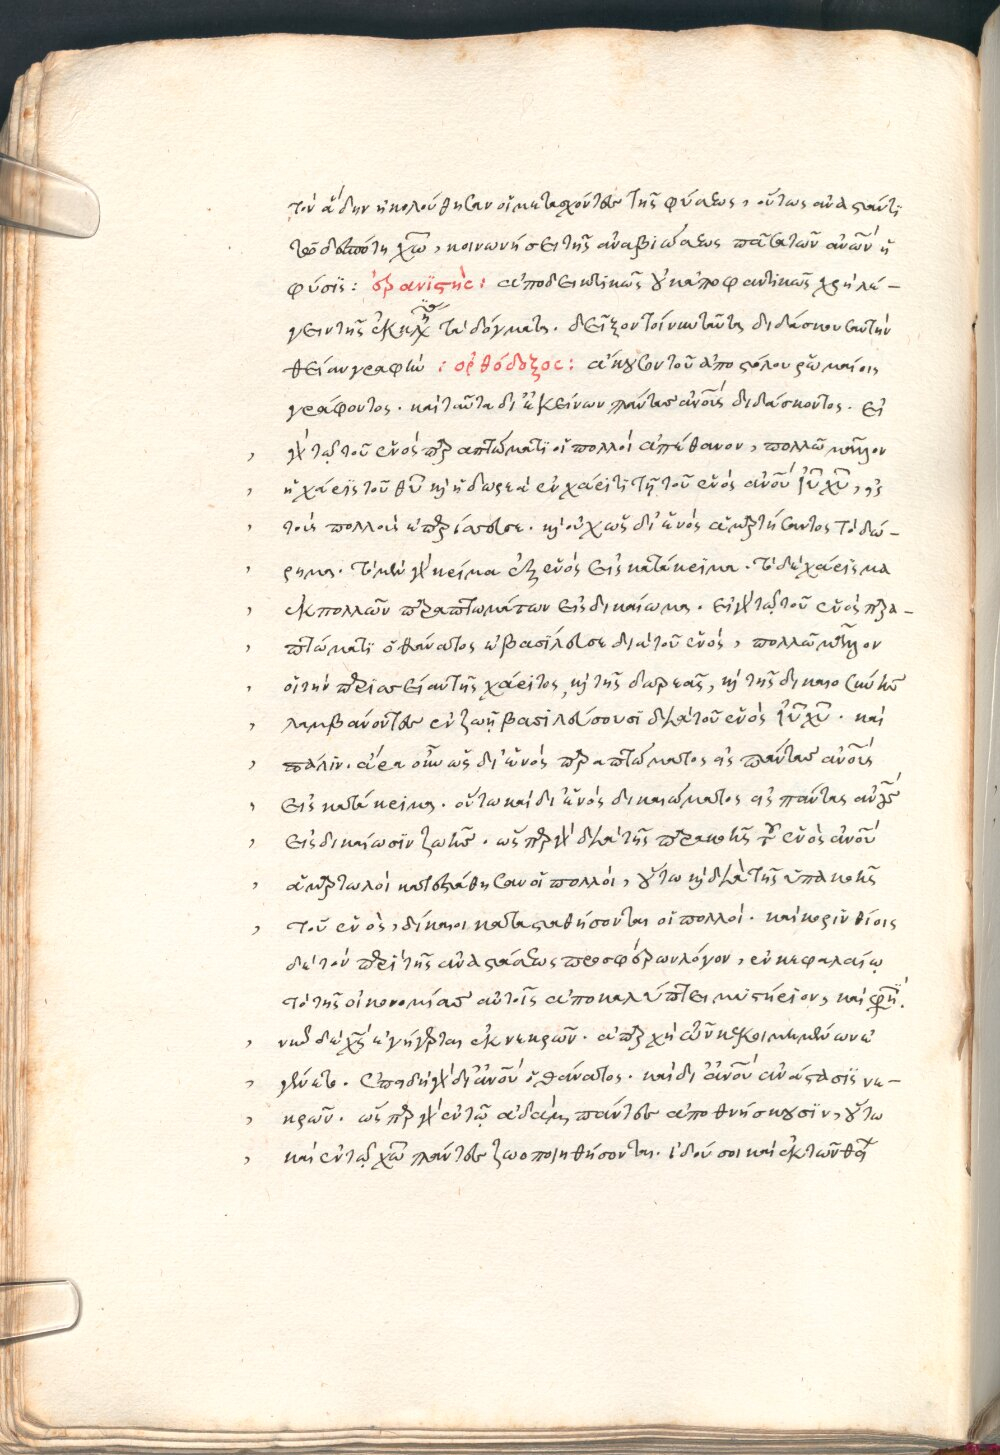 τὸν ἅδην ἠκολούθησαν οἱ μετασχόντες τῆς φύσεως, οὕτως ἀναστάντι
τῶ δεσπότη χῶ, κοινωνήσει τῆς ἀναβιώσεως πᾶσα τῶν ἀνῶν ἡ
φύσις: ἐρανιστής: ἀποδεικτικῶς οὐκ ἀποφαντικῶς χρὴ λέ-
γειν τῆς ἐκκη τὰ δόγματα. δεῖξον τοίνυν ταῦτα διδάσκουσαν τὴν
θείαν γραφήν: ὀρθόδοξος: ἄκουσον τοῦ ἀποστόλου ῥωμαίοις
γράφοντος. καὶ ταῦτα δι' ἐκείνων πάντας ἀνους διδάσκοντος. εἰ
γὰρ τῶ τοῦ ἑνὸς παραπτώματι οἱ πολλοὶ ἀπέθανον, πολλῶ μᾶλλον
ἡ χάρις τοῦ θυ καὶ ἡ δωρεὰ ἐν χάριτι τῆ τοῦ ἑνὸς ἀνου ιυ χυ, εἰς
τοὺς πολλοὺς ἐπερίσσευσε. καὶ οὐχ ὡς δι' ἑνὸς ἁμαρτήσαντος τὸ δώ-
ρημα. τὸ μὲν γὰρ κρίμα ἐξ ἑνὸς εἰς κατάκριμα. τὸ δὲ χάρισμα
ἐκ πολλῶν παραπτωμάτων εἰς δικαίωμα. εἰ γὰρ τῶ τοῦ ἑνὸς παρα-
πτώματι ὁ θάνατος ἐβασίλευσε διὰ τοῦ ἑνός, πολλῶ μᾶλλον
οἱ τὴν περισσείαν τῆς χάριτος, καὶ τῆς δωρεᾶς, καὶ τῆς δικαιοσύνης
λαμβάνοντες ἐν ζωῆ βασιλεύσουσι διὰ τοῦ ἑνὸς ιυ χυ. καὶ
πάλιν. ἄρα οὖν ὡς δι' ἑνὸς παραπτώματος εἰς πάντας ἀνους
εἰς κατάκριμα. οὕτω καὶ δι' ἑνὸς δικαιώματος εἰς πάντας ἀνους
εἰς δικαίωσιν ζωῆς. ὥσπερ γὰρ διὰ τῆς παρακοῆς τοῦ ἑνὸς ἀνου
ἁμαρτωλοὶ κατεστάθησαν οἱ πολλοί, οὕτω καὶ διὰ τῆς ὑπακοῆς
τοῦ ἑνὸς, δίκαιοι κατασταθήσονται οἱ πολλοί. καὶ κορινθίοις
δὲ τὸν περὶ τῆς ἀναστάσεως προσφέρων λόγον, ἐν κεφαλαίῳ
τὸ τῆς οἰκονομίας αὐτοῖς ἀποκαλύπτει μυστήριον, καί φησι.
νυνὶ δὲ χς ἐγήγερται ἐκ νεκρῶν. ἀπαρχὴ τῶν κεκοιμημένων ἐ
γένετο. ἐπειδὴ γὰρ δι' ἀνου ὁ θάνατος. καὶ δι' ἀνου ἀνάστασις νε-
κρῶν. ὥσπερ γὰρ ἐν τῶ ἀδὰμ πάντες ἀποθνήσκουσιν, οὕτω
καὶ ἐν τῶ χῶ πάντες ζωοποιηθήσονται. ἰδού σοι καὶ ἐκ τῶν θεί